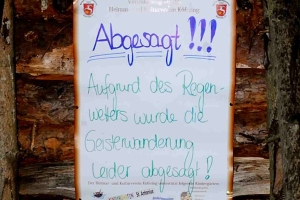 Abgesagt!!!
Aufgrund des Regen-
wetters wurde die
Geisterwanderung
leider abgesagt!